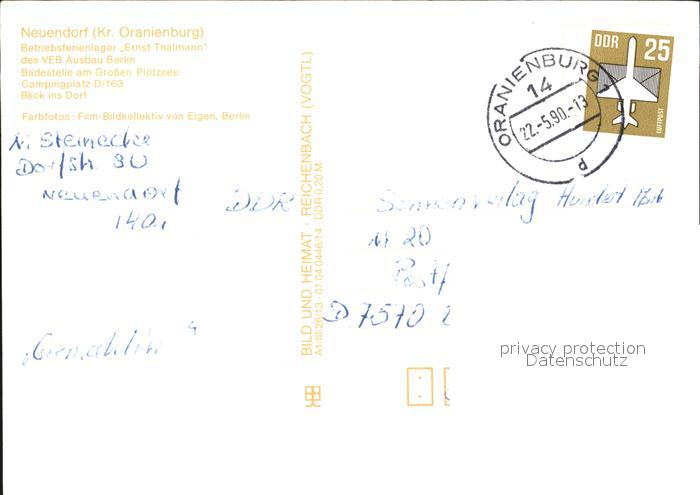 Neuendorf (Kr. Oranienburg)
Betriebsferienlager „Ernst Thälmann“
des VEB Ausbau Berlin
Badestelle am Großen Plötzsee
Campingplatz D/163
Blick ins Dorf
Farbfotos: Film-Bildkollektiv von Eigen, Berlin
N. Steinecke
Dorfstr. 30
Neuendorf
1401
DDR
„Gemahlin“
BILD UND HEIMAT · REICHENBACH (VOGTL)
A1/III/26/13 · 01 04 0446/14 · DDR 0,20 M
DDR 25
LUFTPOST
ORANIENBURG 1
14
22.-5.90.-13
d
Sonnenverlag
20
Postf
D 7570
privacy protection
Oldthing Demokarte